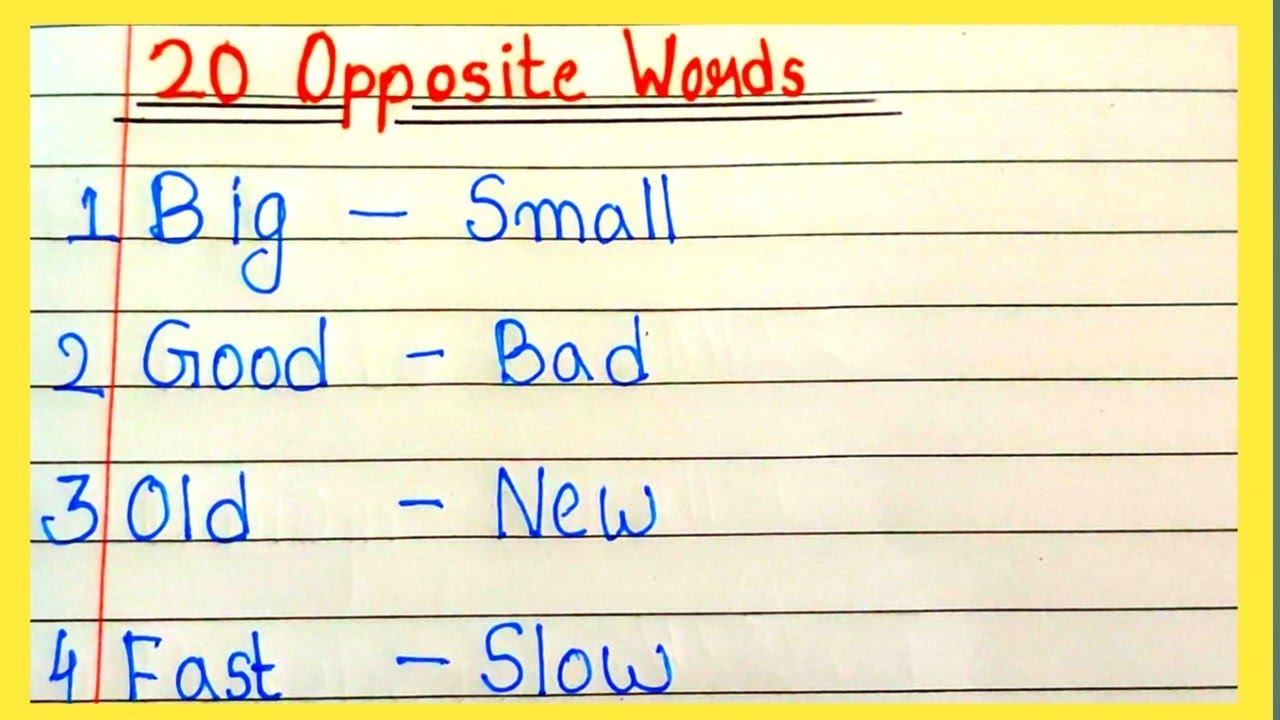 20 Opposite Words
1 Big - Small
2 Good - Bad
3 Old - New
4 Fast - Slow